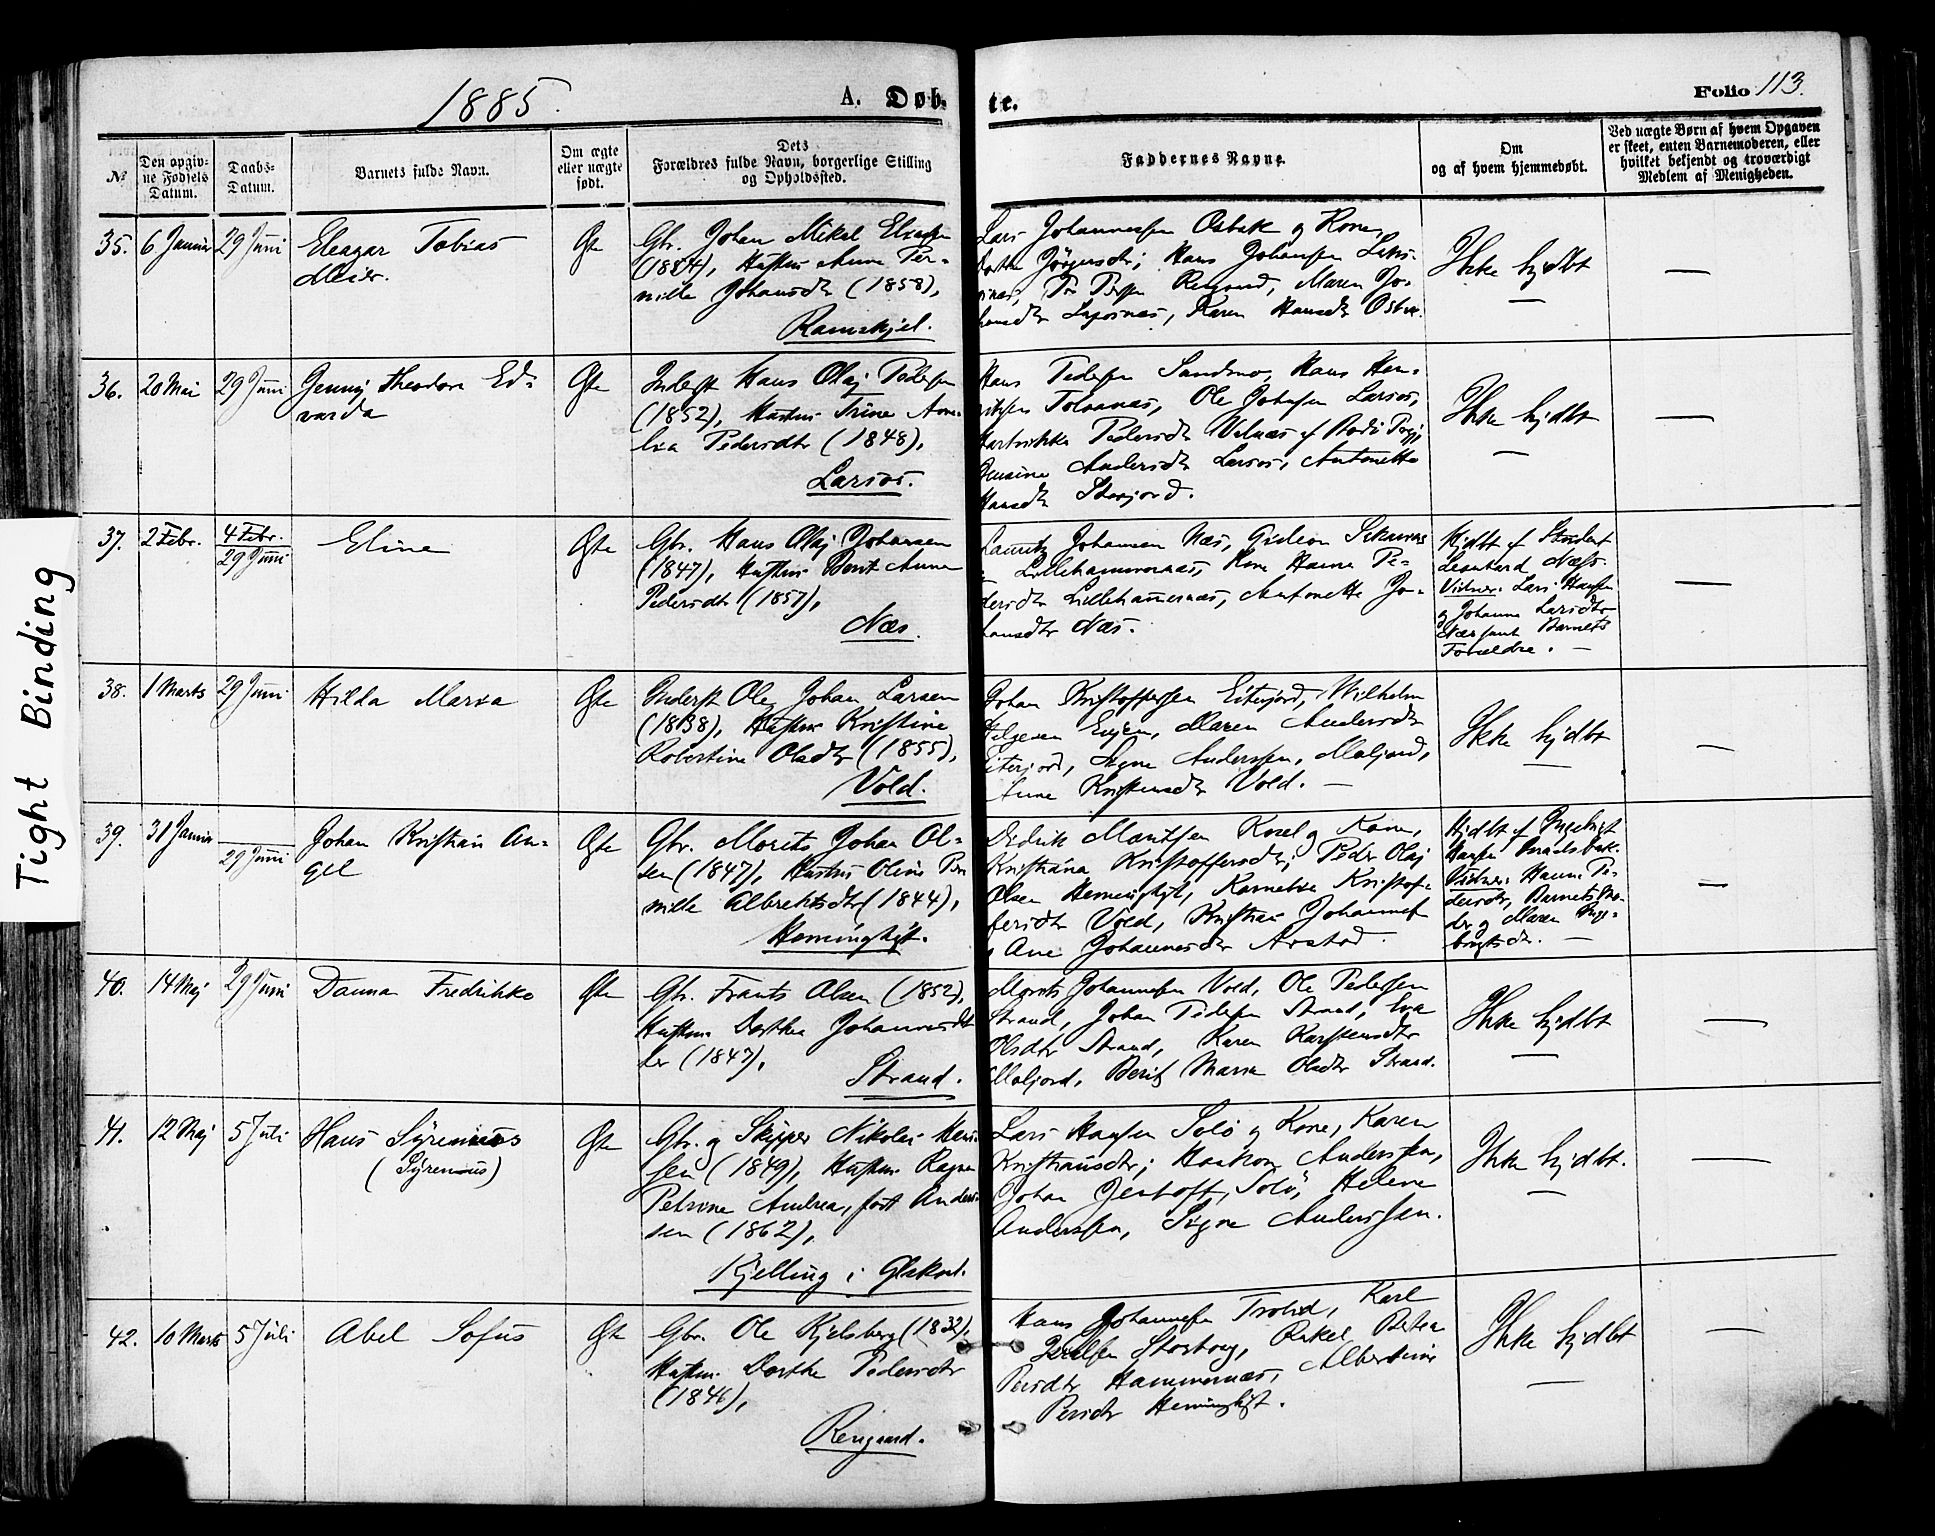 Tight Binding
1885.
A. Døb-
te.
Folio 113.
№
Den opgiv-
ne Fødsels
Datum.
Daabs-
Datum.
Barnets fulde Navn.
Om ægte
eller uægte
født.
Dets
Forældres fulde Navn, borgerlige Stilling
og Opholdssted.
Faddernes Navne.
Om
og af hvem hjemmedøbt.
Ved uægte Børn af hvem Opgaven
er skeet, enten Barnemoderen, eller
hvilket bekjendt og troværdigt
Medlem af Menigheden.
35. 6 Januar 29 Juni Eleazar Tobias
Meier.
Ægte
Gbr. Johan Mikal
(1854), Hustru Anne Per-
nille Johansdtr (1858),
Ramskjel.
Lars Johannessen Osbak og Kone,
Jörgensdtr; Hans Johansen
Maren Jo-
hansdtr Karen Hansdtr
Ikke hjdbt
—
36. 20 Mai 29 Juni Jenny Theodora Ed-
varda
Ægte
Inderst Hans Olaj Pedersen
(1852), Hustru Trine
Pedersdtr (1848),
Larsos.
Hans Pedersen Sandmo, Hans Hen-
riksen Tolvanæs, Ole Johansen Larsos,
Pedersdtr Valnæs af Bodö
Andersdtr Larsos, Antonette
Hansdtr Storjord.
Ikke hjdbt
—
37. 2 Febr. 4 Febr.
29 Juni
Eline
Ægte
Gbr. Hans Olaj Johansen
(1847), Hustru Berit Anna
Pedersdtr (1857),
Næs.
Lauritz Johansen Næs, Gideon
Lillehammernæs, Kone Hanna Pe-
dersdtr Lillehammernæs, Antonette Jo-
hansdtr Næs.
Hjdbt af Student
Leonhard Næss.
Vidner: Lars Hansen
og Johanna Larsdtr
Næs samt Barnets
Forældre. —
38. 1 Marts 29 Juni Hilda Maria
Ægte
Inderst Ole Johan Larsen
(1858), Hustru Kristine
Robertine Olsdtr (1855),
Vold.
Johan Kristoffersen Eiterjord, Wilhelm
Helgesen Evjen, Maren Andersdtr
Eiterjord, Signe Anderssen, Moljord,
Anne Kristensdtr Vold. —
Ikke hjdbt
—
39. 31 Januar
29 Juni
Johan Kristian An-
gel
Ægte
Gbr. Morits Johan Ol-
sen (1847), Hustru Oline Per-
nille Albrektsdtr (1844),
Hemingtyt.
Didrik Moritsen Kosel og Kone,
Kristiana Kristoffersdtr; Peder Olaj
Olsen Hemingtyt, Kornelia Kristof-
fersdtr Vold, Kristian Johannes
Ane Johannesdtr Arstad.
Hjdbt af Ingebrigt
Hansen
Vidner: Hanna Pe-
dersdtr, Barnets Mo-
der og Maren Inge-
brigtsdtr. —
40. 14 Maj 29 Juni Danna Fredrikke
Ægte
Gbr. Frants Olsen (1852),
Hustru Dorthea Johannesdat-
ter (1847),
Strand.
Morits Johannesen Vold, Ole Pedersen
Strand, Johan Pedersen Strand, Eva
Olsdtr Strand, Karen Karstensdtr
Moljord, Berit Maria Olsdtr Strand.
Ikke hjdbt
—
41. 12 Maj 5 Juli Hans Syrenius
(Syrenius)
Ægte
Gbr. og Skipper Nikolai Han-
sen (1849), Hustru Ragna
Petrine Andrea, født Ander-
sen (1862),
Kjelling i Gleskar.
Lars Hansen Solö og Kone, Karen
Kristiansdtr; Haakon Anderssen,
Johan Jentoft, Solö, Helene
Anderssen, Signe Anderssen.
Ikke hjdbt.
—
42. 10 Marts 5 Juli Abel Sofus
Ægte
Gbr. Ole Kjelsberg (1832),
Hustru Dorthe Pedersdtr
(1846),
Rengaard.
Hans Johannesen Trolid, Karl
Storborg, Rakel Petra
Persdtr Hammernæs, Albertine
Persdtr Hemingtyt.
Ikke hjdbt
—